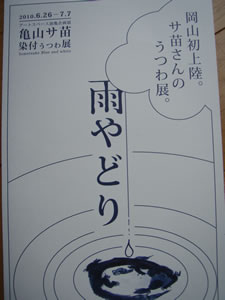 2010.6.26−7.7
アートスペース油亀企画展
亀山サ苗
染付うつわ展
Sometsuke Blue and white
岡山初上陸。
サ苗さんの
うつわ展。
雨やどり